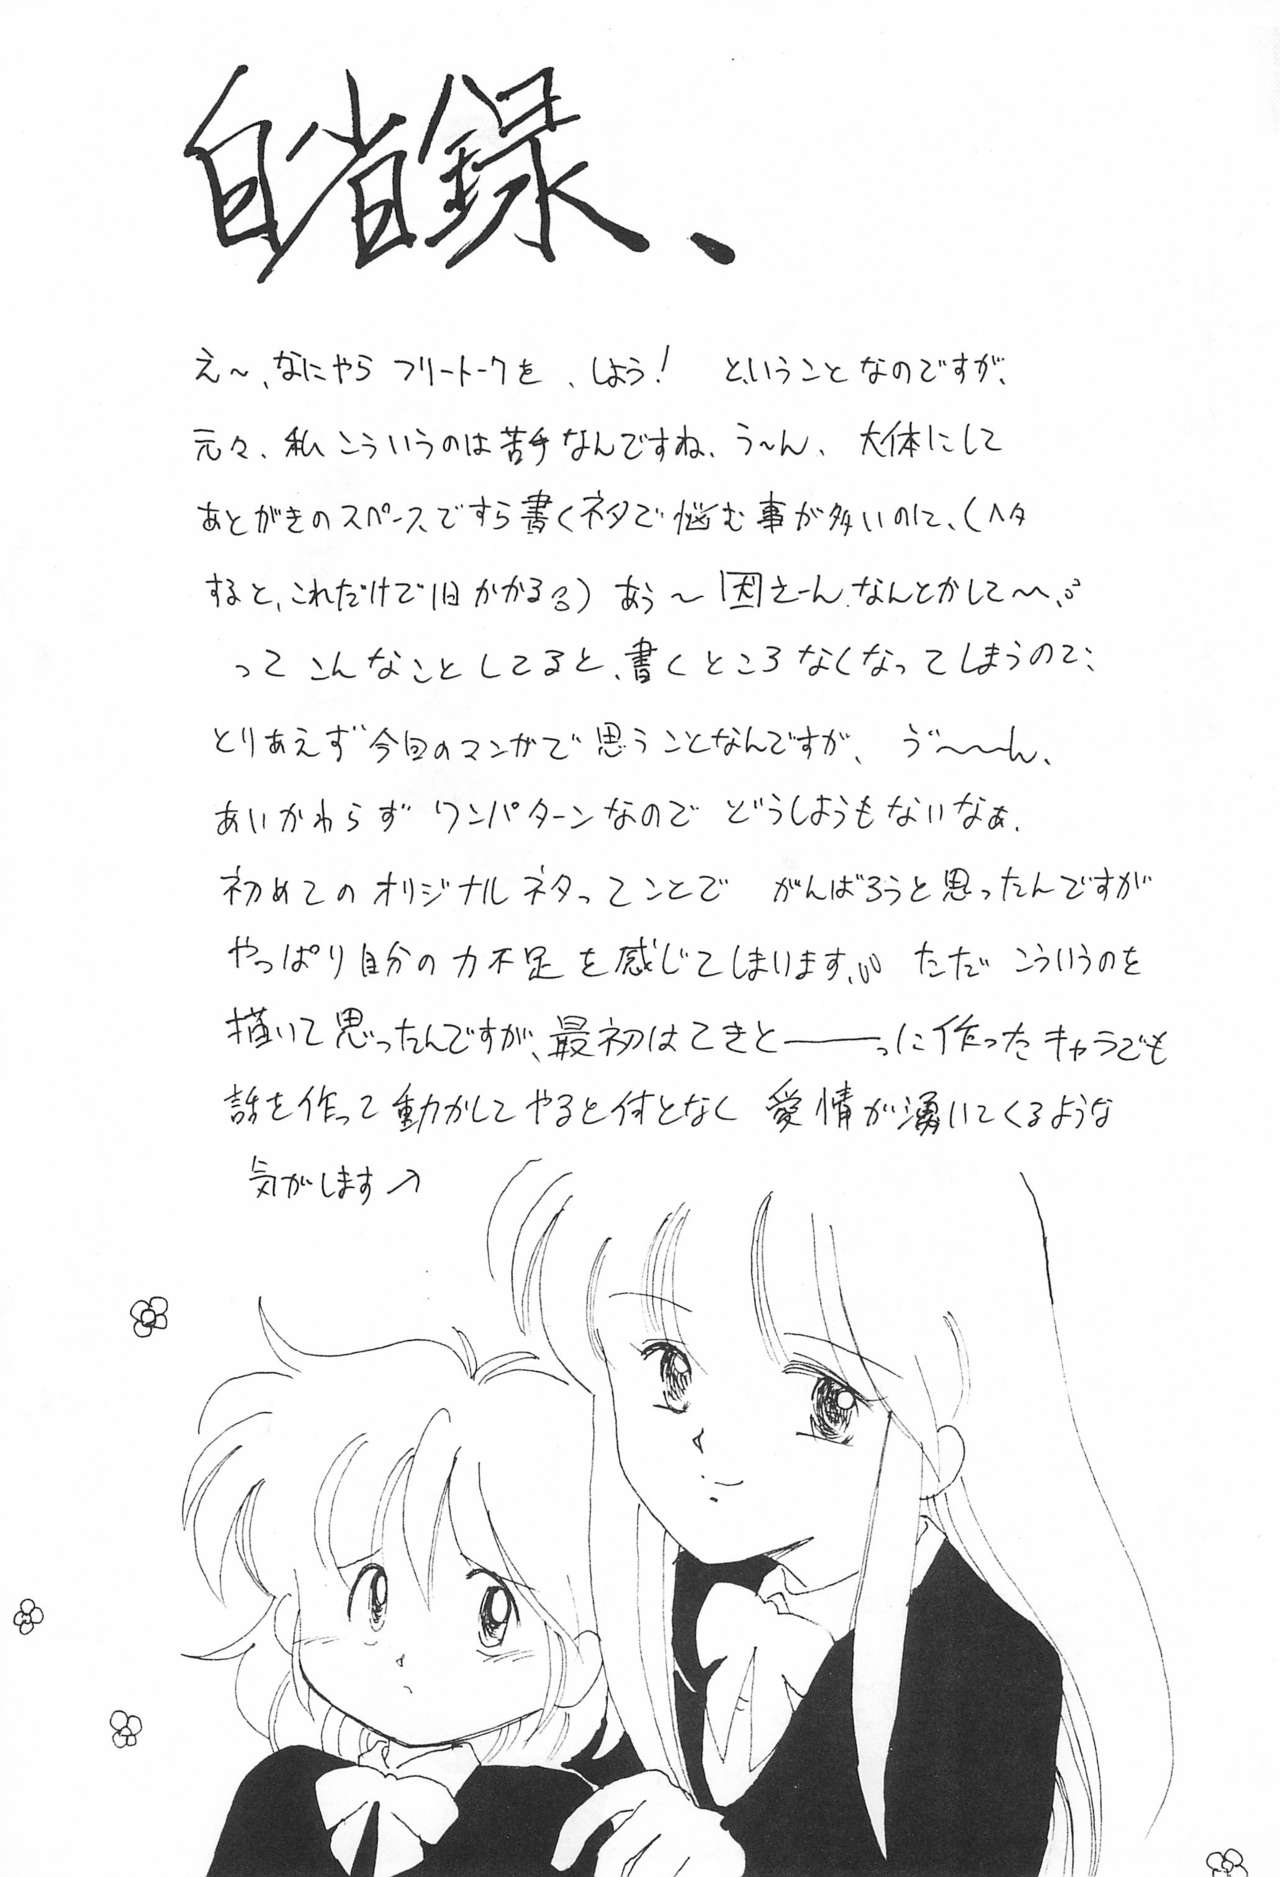 自省録、
え〜、なにやらフリートークを、しよう！ ということなのですが、
元々、私こういうのは苦手なんですね、う〜ん、大体にして
あとがきのスペースですら書くネタで悩む事が多いのに、(ヘタ
すると、これだけで1日かかる) あう〜 困えーん、なんとかして〜、
ってこんなことしてると、書くところなくなってしまうので、
とりあえず今回のマンガで思うことなんですが、う゛〜〜ん、
あいかわらずワンパターンなのでどうしようもないなぁ、
初めてのオリジナルネタってことで がんばろうと思ったんですが
やっぱり自分の力不足を感じてしまいます、ただ こういうのを
描いて思ったんですが、最初はてきと———っに作ったキャラでも
話を作って動かしてやると何となく愛情が湧いてくるような
気がします